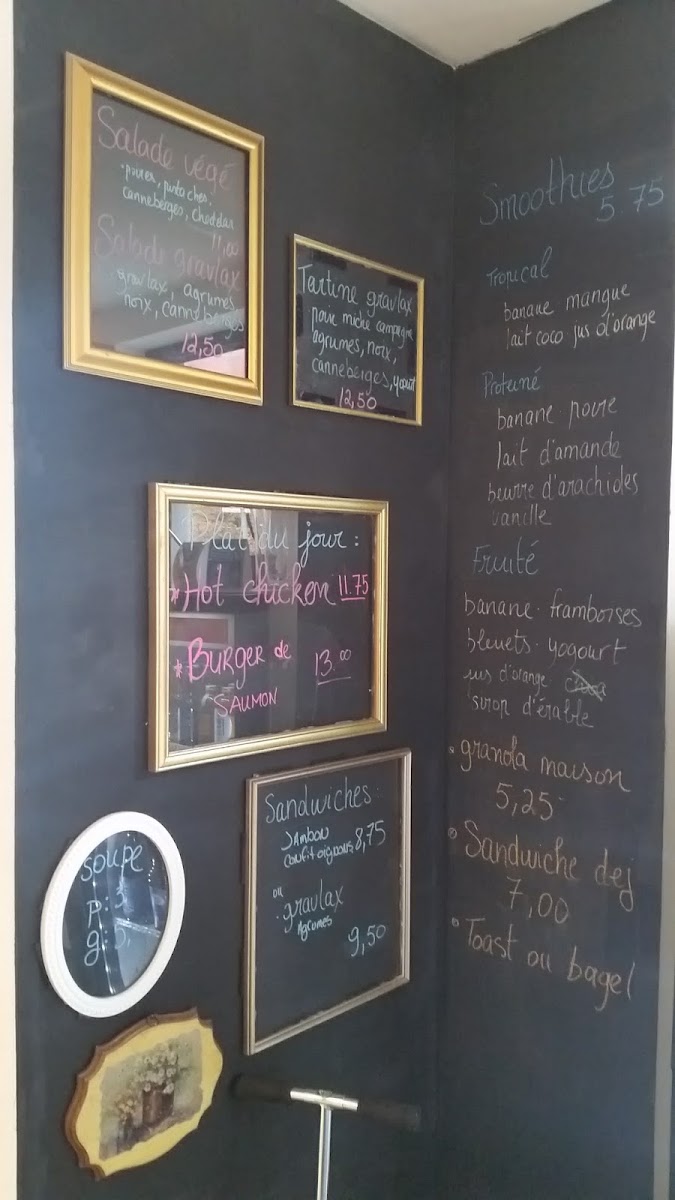 Salade végé
•poires, pistaches,
canneberges, cheddar
11,00
Salade gravlax
gravlax, agrumes
noix, canneberges
12,50
Tartine gravlax
poire miche campagne
agrumes, noix,
canneberges, yaourt
12,50
Plat du jour :
*Hot chicken 11.75
*Burger de 13.00
SAUMON
Sandwiches
JAMBON
confit oignons 8,75
ou
•gravlax
Agrumes
9,50
soupe
p: 3,
g:
Smoothies
5.75
Tropical
banane mangue
lait coco jus d'orange
Protéiné
banane poire
lait d'amande
beurre d'arachides
vanille
Fruité
banane. framboises
bleuets. yogourt
jus d'orange
sirop d'érable
•granola maison
5,25
•Sandwiche dej
7,00
•Toast ou bagel